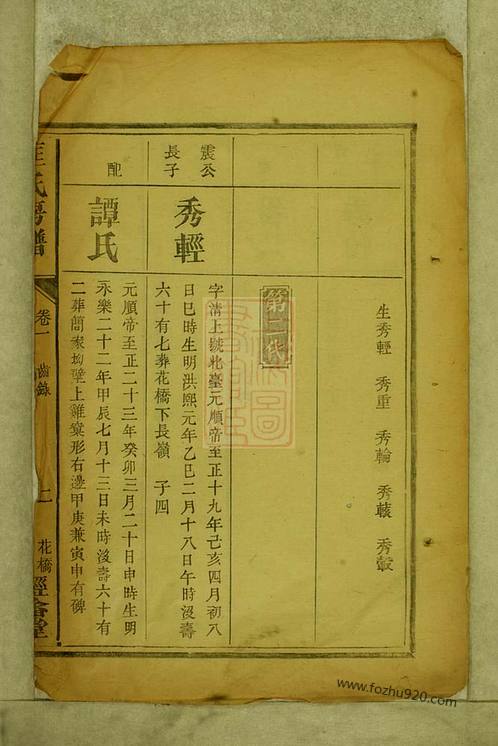 生秀輕 秀重 秀輪 秀轅 秀轂
第二代
震公
長子
秀輕
字清上號北臺元順帝至正十九年己亥四月初八
日巳時生明洪熙元年乙巳二月十八日午時沒壽
六十有七葬花橋下長嶺 子四
配
譚氏
元順帝至正二十三年癸卯三月二十日申時生明
永樂二十二年甲辰七月十三日未時沒壽六十有
二葬簡家坳壁上雞窠形右邊甲庚兼寅申有碑
氏房譜
卷一 齒錄
二
花橋
www.fozhu920.com